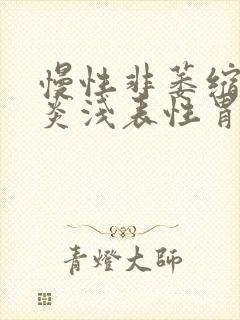 慢性非萎缩
炎浅表性胃
青燈大師